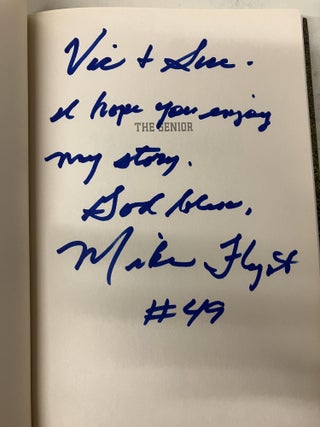 Vic + Sue.
I hope you enjoy
THE SENIOR
my story.
God bless,
Mike Flynt
#49